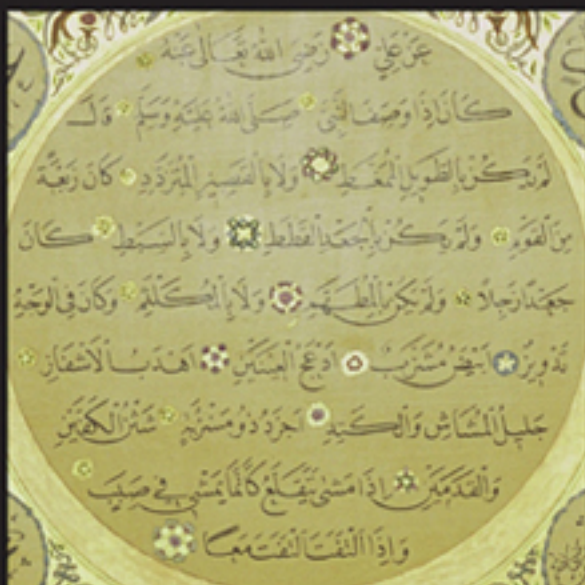 عن علي رضى الله تعالى عنه
كان اذا وصف النبى صلى الله عليه وسلم قال
لم يكن بالطويل الممغط ولا بالقصير المتردد كان ربعة
من القوم ولم يكن بالجعد القطط ولا بالسبط كان
جعدا رجلا ولم يكن بالمطهم ولا بالمكلثم وكان فى الوجه
تدوير ابيض مشرب ادعج العينين اهدب الاشفار
جليل المشاش والكتد اجرد ذو مسربة شثن الكفين
والقدمين اذا مشى يتقلع كأنما يمشى فى صبب
واذا التفت التفت معا